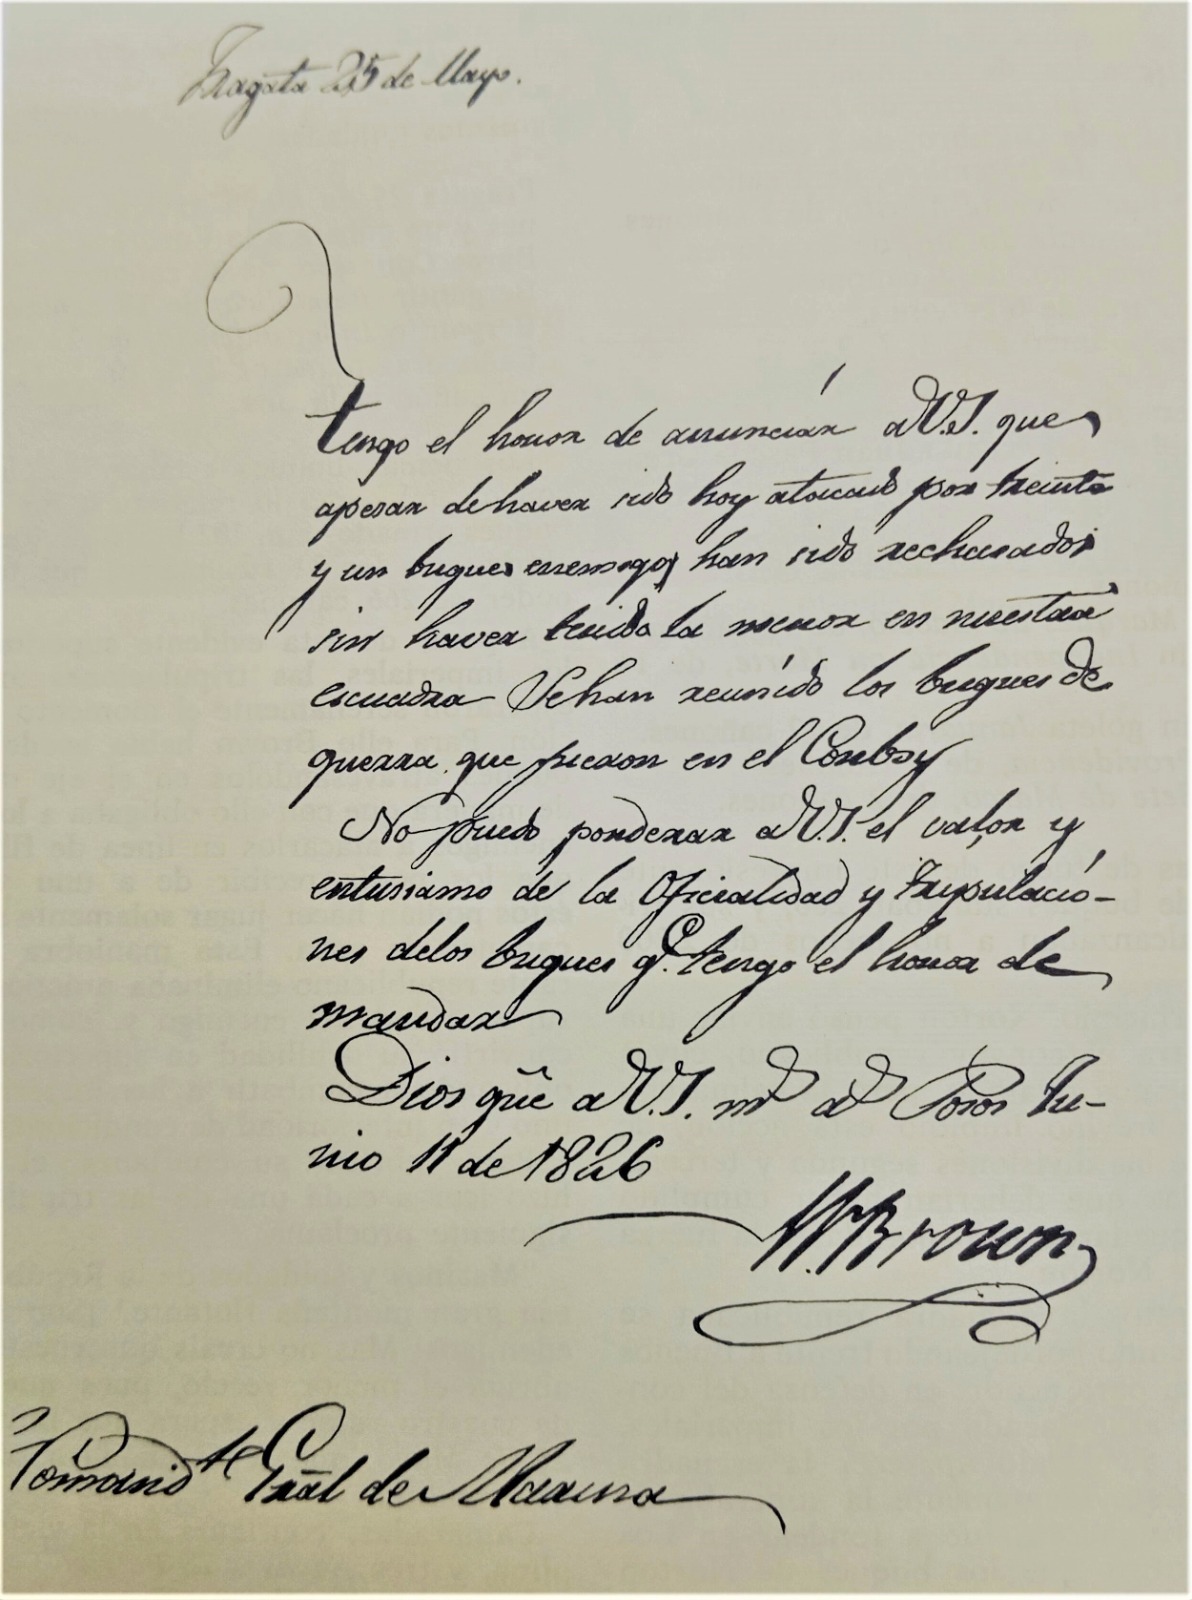 Fragata 25 de Mayo.
Tengo el honor de anunciár a V.S. que
apesar de haver sido hoy atacado por treinta
y un buques enemigos han sido rechasados
sin haver tenido la menor en nuestra
escuadra Sehan reunido los buques de
guerra que fueron en el Comboy
No puedo ponderar a V.S. el valor y
entusiamo de la Oficialidad y Tripulacio-
nes delos buques q.e tengo el honor de
mandar
Dios güe a V.S. m.s a.s Posos Ju-
nio 11 de 1826
W. Brown
Comand.te Gral de Marina